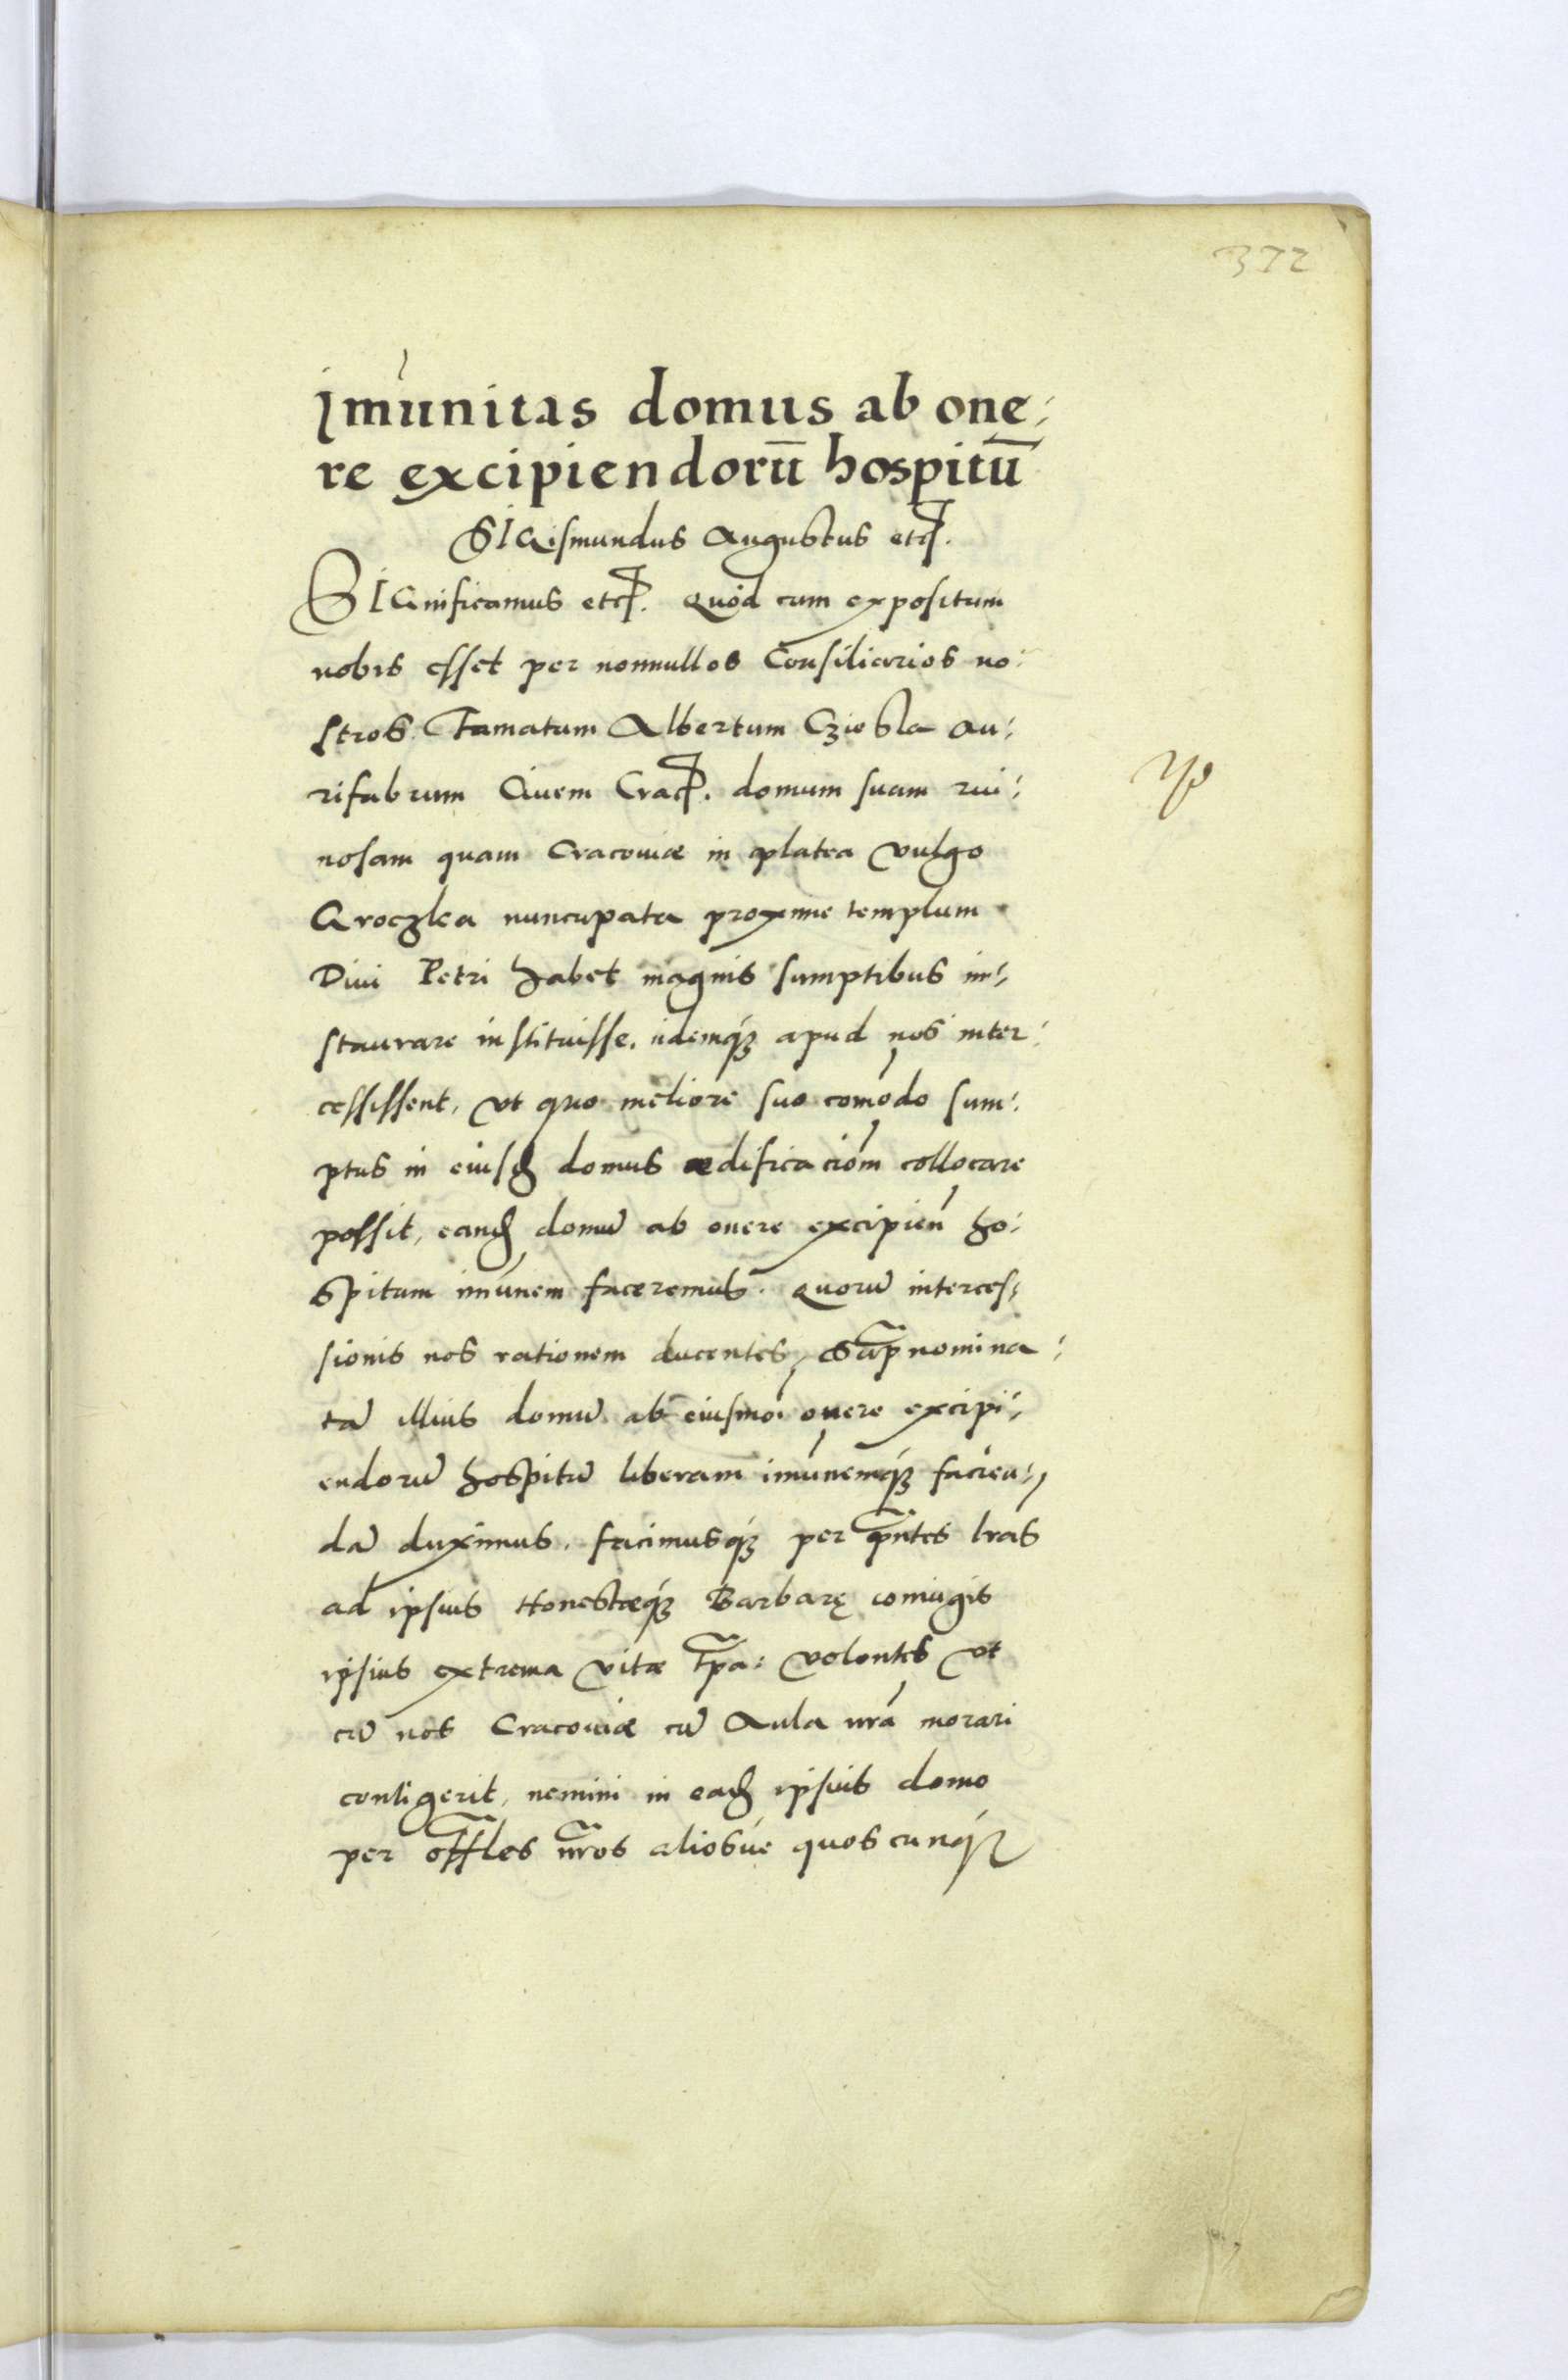 372
Jmunitas domus ab one:
re excipiendorū hospitū
SIGismundus Augustus etc.
SIGnificamus etc. Quòd cum expositum
nobis esset per nonnullos Consiliarios no:
stros Famatum Albertum
rifabrum Ciuem Crac. domum suam rui:
nosam quam Cracouiæ in platea vulgo
Groczka nuncupata proxime templum
Diui Petri habet magnis sumptibus in:
staurare instituisse. ijdemq́ꝫ apud nos inter:
cessissent, vt quo meliore suo com̄odo sum:
ptus in eiusd domus ædificaciom̄ collocare
possit, eand domū ab onere excipien̄ ho:
spitum im̄unem faceremus. Quorū interces:
sionis nos rationem ducentes, supnomina:
tā illius domū ab eiusmoi onere excipi:
endorū hospitū liberam im̄unemq́ꝫ facien:
dā duximus. facimusq́ꝫ per pn̄tes lrās
ad ipsius Honestæq́ꝫ Barbarę coniugis
ipsius extrema vitæ tpā: volentes vt
cū nos Cracouiæ cū Aula nrā morari
contigerit, nemini in ead ipsius domo
per offles nros aliosúe quoscunq́ꝫ